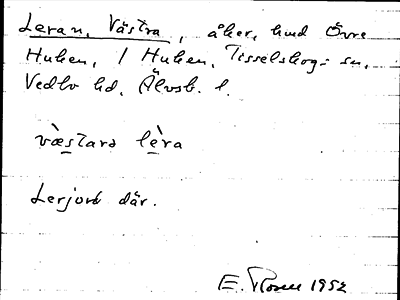 Leran, Västra, åker, hmd Övre
Huken, 1 Huken, Tisselskogs sn,
Vedbo hd, Älvsb. l.
væ̀starə lè̱ra
Lerjord där.
E. Rosen 1952